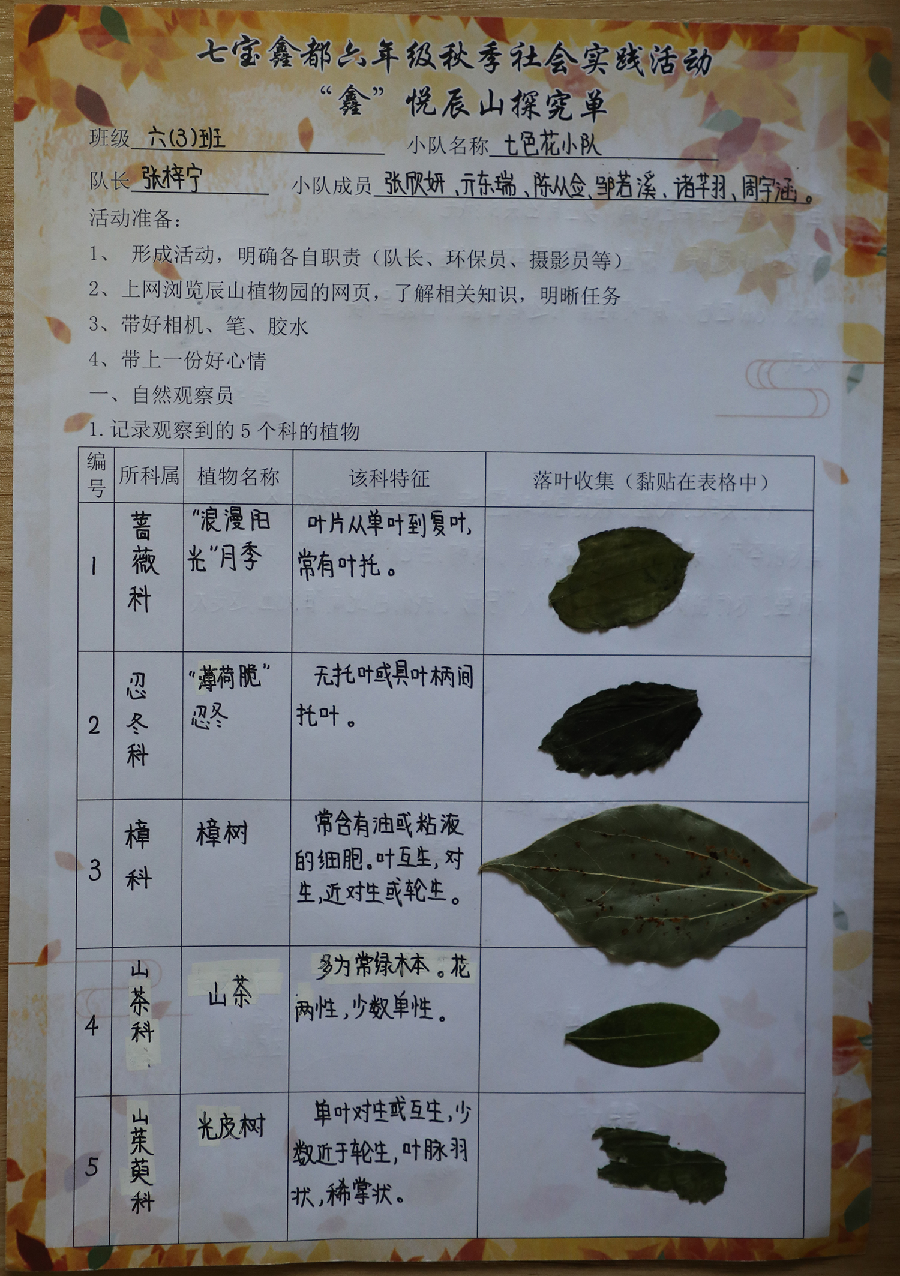 七宝鑫都六年级秋季社会实践活动
“鑫”悦辰山探究单
班级 六(3)班 小队名称 七色花小队
队长 张梓宁 小队成员 张欣妍、亓东瑞、陈从俭、邹若溪、诸芊羽、周宇涵。
活动准备：
1、 形成活动，明确各自职责（队长、环保员、摄影员等）
2、上网浏览辰山植物园的网页，了解相关知识，明晰任务
3、带好相机、笔、胶水
4、带上一份好心情
一、自然观察员
1.记录观察到的5个科的植物
编号 所科属 植物名称 该科特征 落叶收集（黏贴在表格中）
1 蔷薇科 “浪漫阳光”月季 叶片从单叶到复叶,
常有叶托。
2 忍冬科 “薄荷脆”忍冬 无托叶或具叶柄间
托叶。
3 樟科 樟树 常含有油或粘液
的细胞。叶互生,对
生,近对生或轮生。
4 山茶科 山茶 多为常绿木本。花
两性,少数单性。
5 山茱萸科 光皮树 单叶对生或互生,少
数近于轮生,叶脉羽
状,稀掌状。